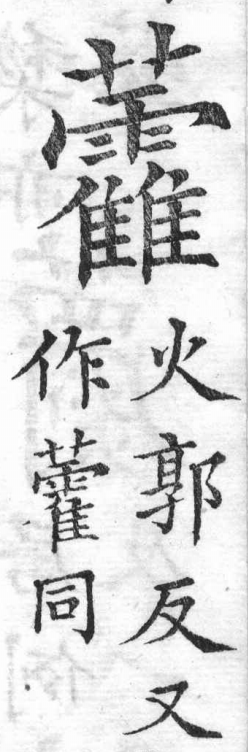 𧆑
火郭反又
作藿同